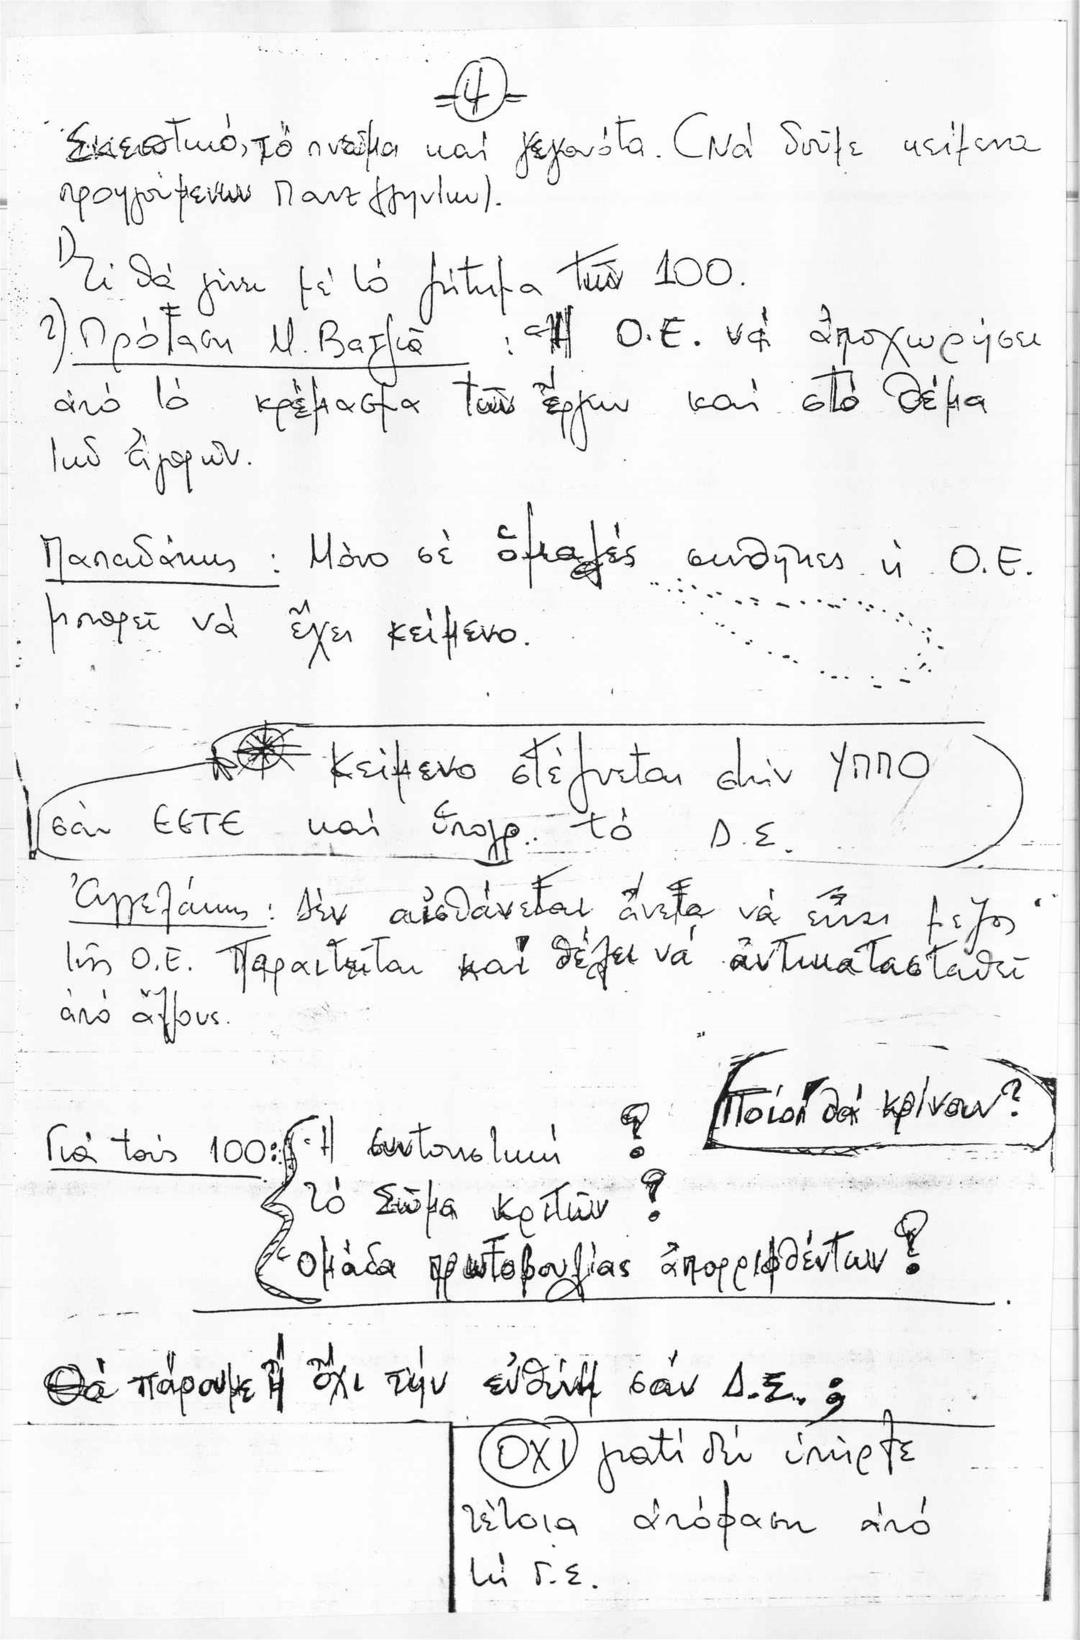 =4=
Σκεπτικό, τό πνεῦμα καί γεγονότα. (Νά δοῦμε κείμενα
προηγούμενων Πανελληνίων).
1) Τί θά γίνει μέ τό ζήτημα τῶν 100.
2) Πρόταση Μ. : Ἡ Ο.Ε. νά ἀποχωρήσει
ἀπό τό κρέμασμα τῶν ἔργων καί στό θέμα
τῶν ἀγορῶν.
Παπαδάκης : Μόνο σέ ὁμαλές συνθῆκες ἡ Ο.Ε.
μπορεῖ νά ἔχει κείμενο.
Κείμενο στέλνεται στήν ΥΠΠΟ
σάν ΕΕΤΕ καί ὑπογρ. τό Δ.Σ.
Ἀγγελάκης : Δέν αἰσθάνεται ἄνετα νά εἶναι μέλος
τῆς Ο.Ε. Παραιτεῖται καί θέλει νά ἀντικατασταθεῖ
ἀπό ἄλλους.
Ποίοι θά κρίνουν?
Γιά τούς 100: Ἡ συντονιστική ?
Τό Σῶμα κριτῶν ?
Ὁμάδα πρωτοβουλίας ἀπορριφθέντων ?
Θά πάρουμε ἤ ὄχι τήν εὐθύνη σάν Δ.Σ. ;
ΟΧΙ γιατί δέν ὑπῆρξε
τέτοια ἀπόφαση ἀπό
τή Γ.Σ.